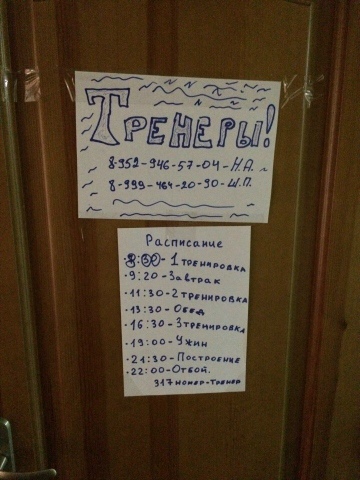 Тренеры!
8-952-946-57-04-Н.А.
8-999-464-20-90-Ш.П.
Расписание
·8:00-1 тренировка
·9:20-Завтрак
·11:30-2 тренировка
·13:30-Обед
·16:30-3 тренировка
·19:00-Ужин
·21:30-Построение
·22:00-Отбой.
317 номер-тренер